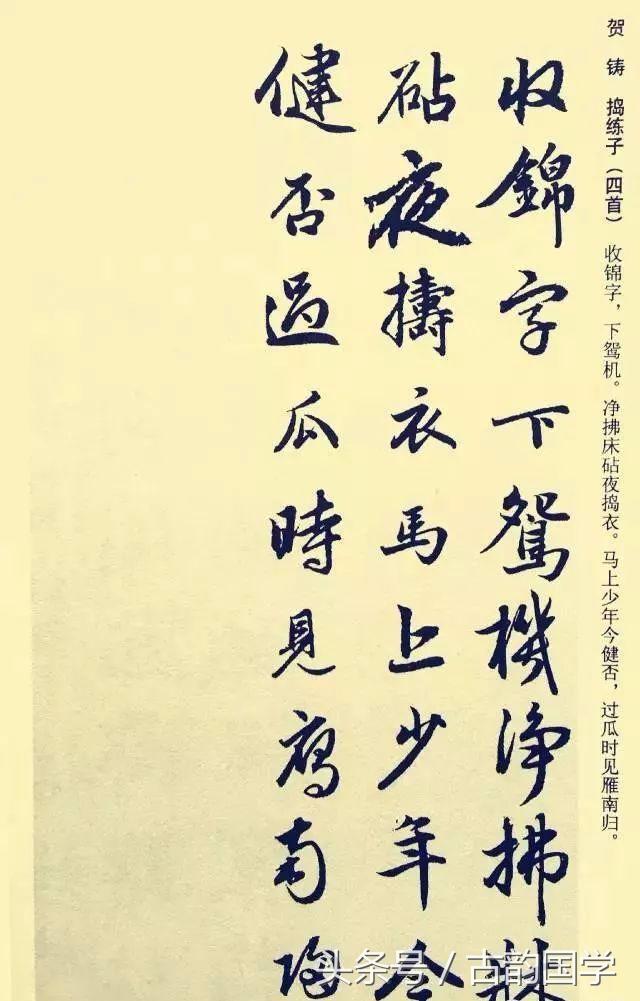 贺 铸 捣练子（四首） 收锦字，下鸳机。净拂床砧夜捣衣。马上少年今健否，过瓜时见雁南归。
收錦字下鴛機淨拂牀
砧夜擣衣馬上少年今
健否過瓜時見鴈南歸
头条号／古韵国学